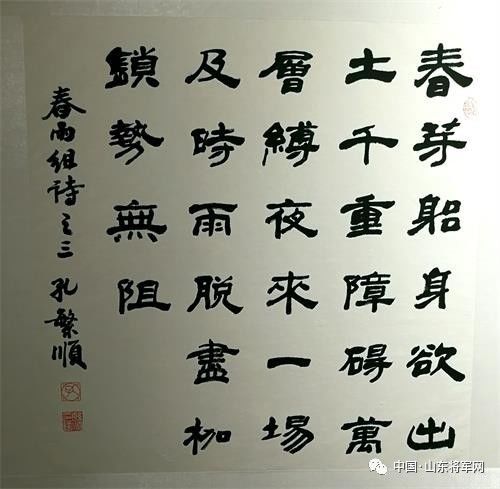 春芽躬身欲出
土千重障碍萬
層縛夜來一場
及時雨脫盡枷
鎖勢無阻
春雨组诗之三 孔繁順
中国·山东将军网